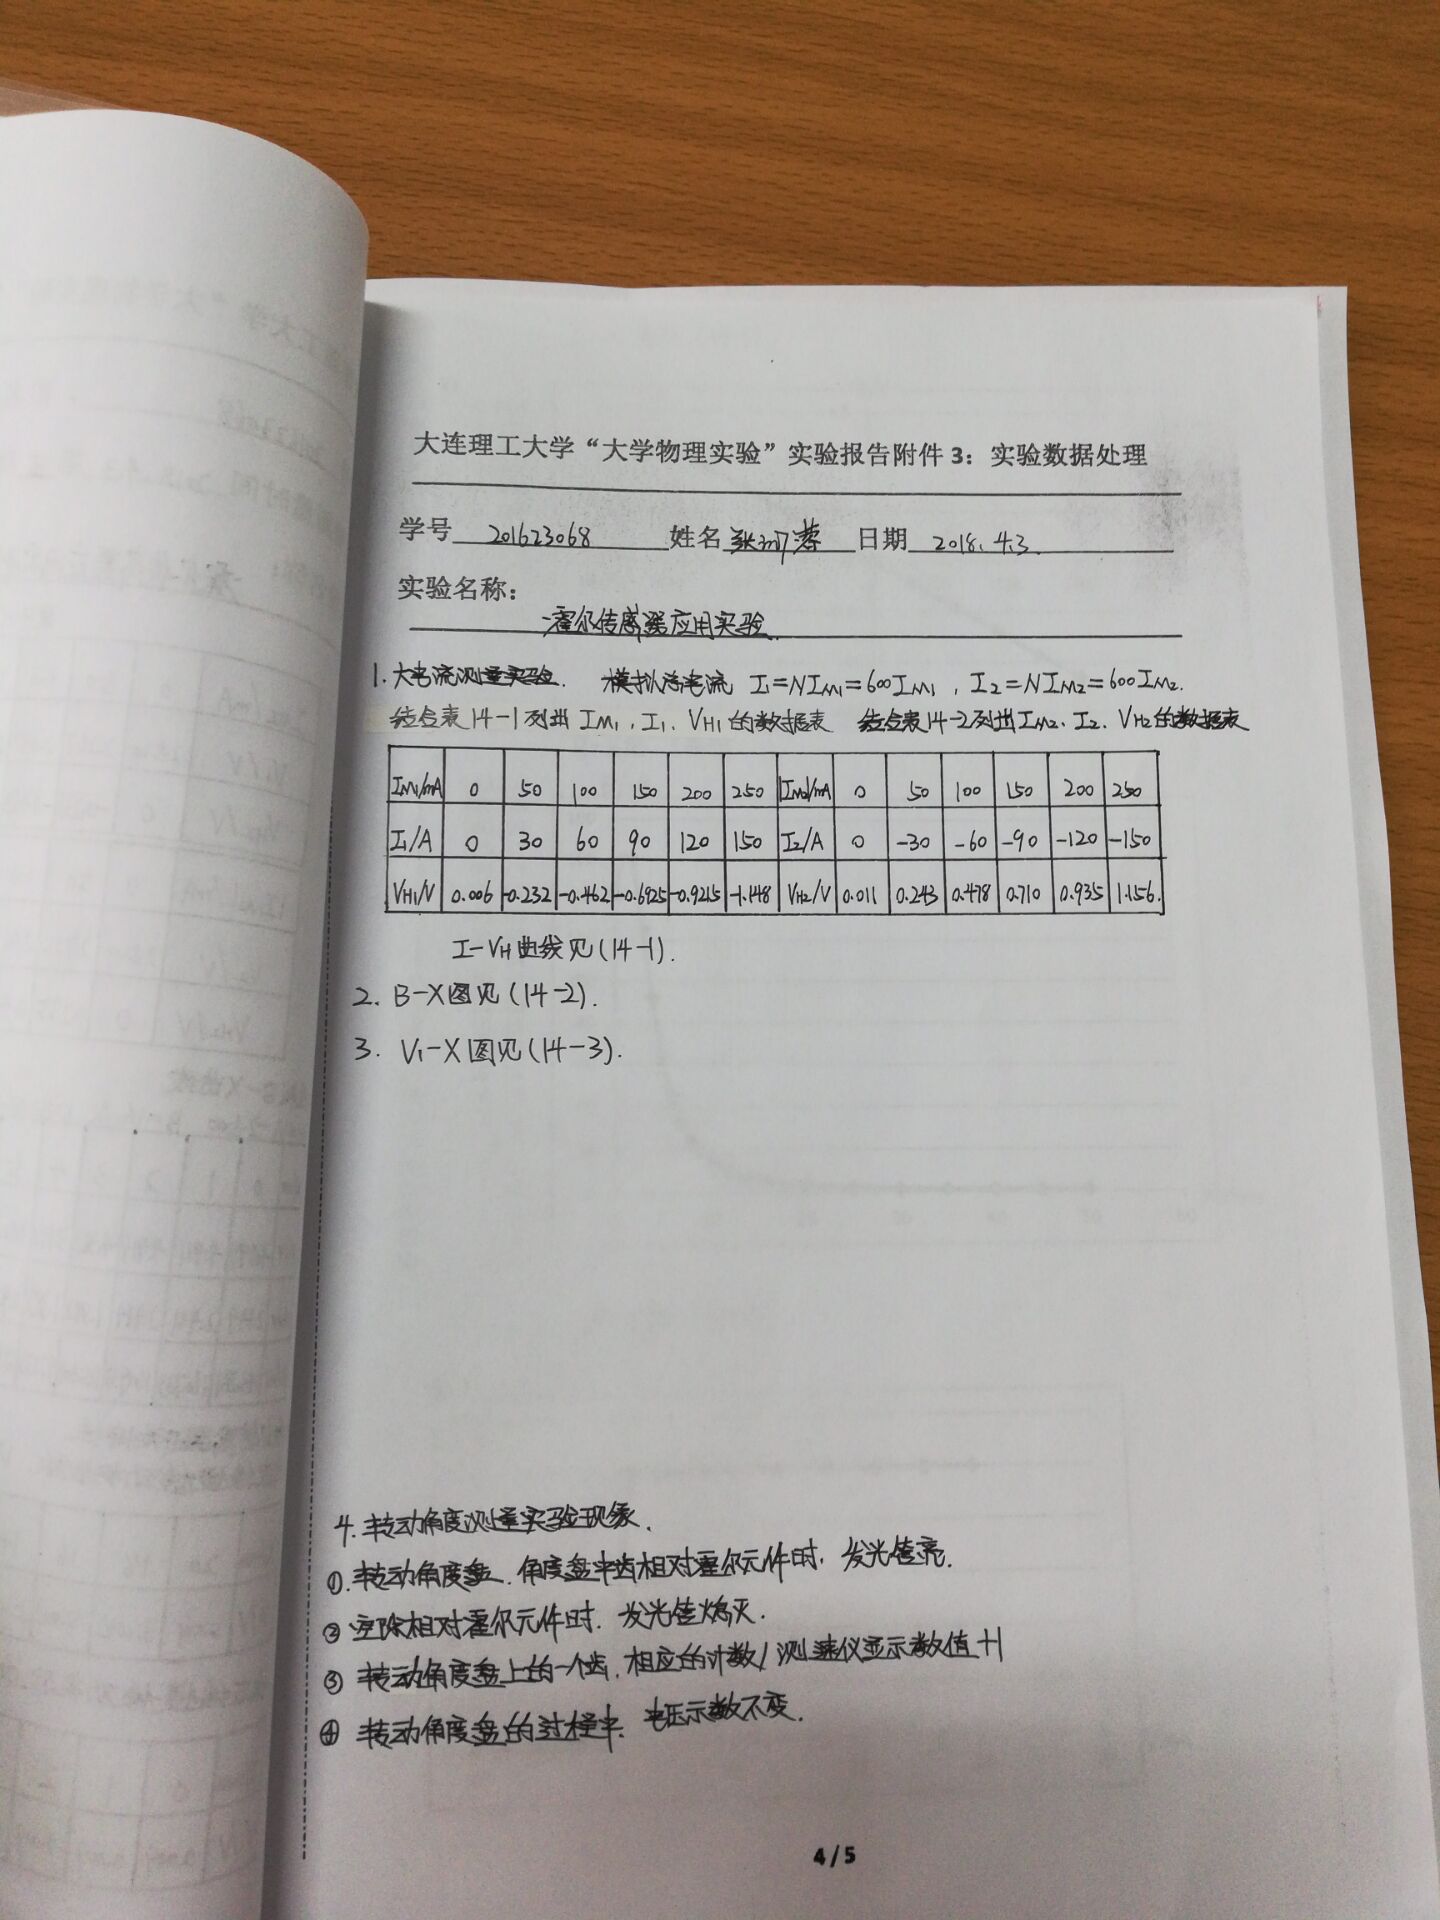 大连理工大学“大学物理实验”实验报告附件 3：实验数据处理
学号 201623068 姓名 张 蓉 日期 2018.4.3.
实验名称：
霍尔传感器应用实验.
1.大电流测量实验. 模拟总电流 I₁=NIM₁=600IM₁，I₂=NIM₂=600IM₂.
结合表14-1列出 IM₁、I₁、VH₁的数据表 结合表14-2列出IM₂、I₂、VH₂的数据表
IM₁/mA 0 50 100 150 200 250 IM₂/mA 0 50 100 150 200 250
I₁/A 0 30 60 90 120 150 I₂/A 0 -30 -60 -90 -120 -150
VH₁/V 0.006 -0.232 -0.462 -0.6925 -0.9215 -1.148 VH₂/V 0.011 0.243 0.478 0.710 0.935 1.156.
I-VH曲线见(14-1).
2. B-X图见(14-2).
3. V₁-X图见(14-3).
4. 转动角度测量实验现象.
①.转动角度盘.角度盘中齿相对霍尔元件时.发光管亮.
② 空隙相对霍尔元件时.发光管熄灭.
③ 转动角度盘上的一个齿.相应的计数/测速仪显示数值+1
④ 转动角度盘的过程中.电压示数不变.
4 / 5